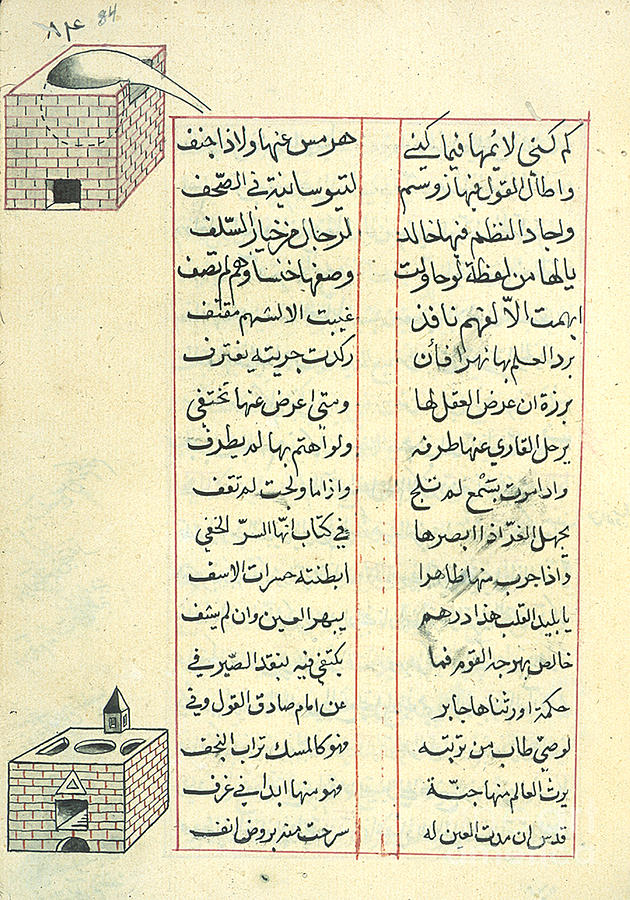 ٨٤ 84
كم كنى لايمها فيما كنى هرمس عنها ولاذا جنف
واطال القول فيها زوسم لتيوسانية في الصحف
ولجاد النظم فيها خالد لرجال من خيار السلف
يالها من لفظة لو حاولت وصفها خنسا وهم لم تصف
ابهمت الا لفهم نافذ غيبت الا لشهم مقتف
برد العلم بها نهرا فأن ركدت جريته يغترف
برزة ان عرض العقل لها ومتى اعرض عنها تختفي
يرحل القاري عنها طرفه ولو اهتم بها لم يطرف
واذا مرت بسمع لم تلج واذا ما ولجت لم تقف
يجهل الغر اذا ابصرها في كتاب انها السر الخفي
واذا جرب منها ظاهرا ابطنته حسرات الاسف
يا بليد القلب هذا درهم يبهر العين وان لم يشف
خالص بهرجه القوم فما يكتفي فيه بنقد الصيرفي
حكمة اورثناها جابر عن امام صادق القول وفي
لوصي طاب من تربته فهو كالمسك تراب النجف
يرث العالم منها جنة فهو منها ابدا في غرف
قدس ان مدت العين له سرحت منه بروض انف